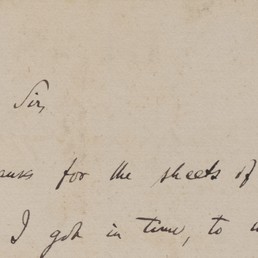 Sir,
anks for the sheets of
I got in time, to